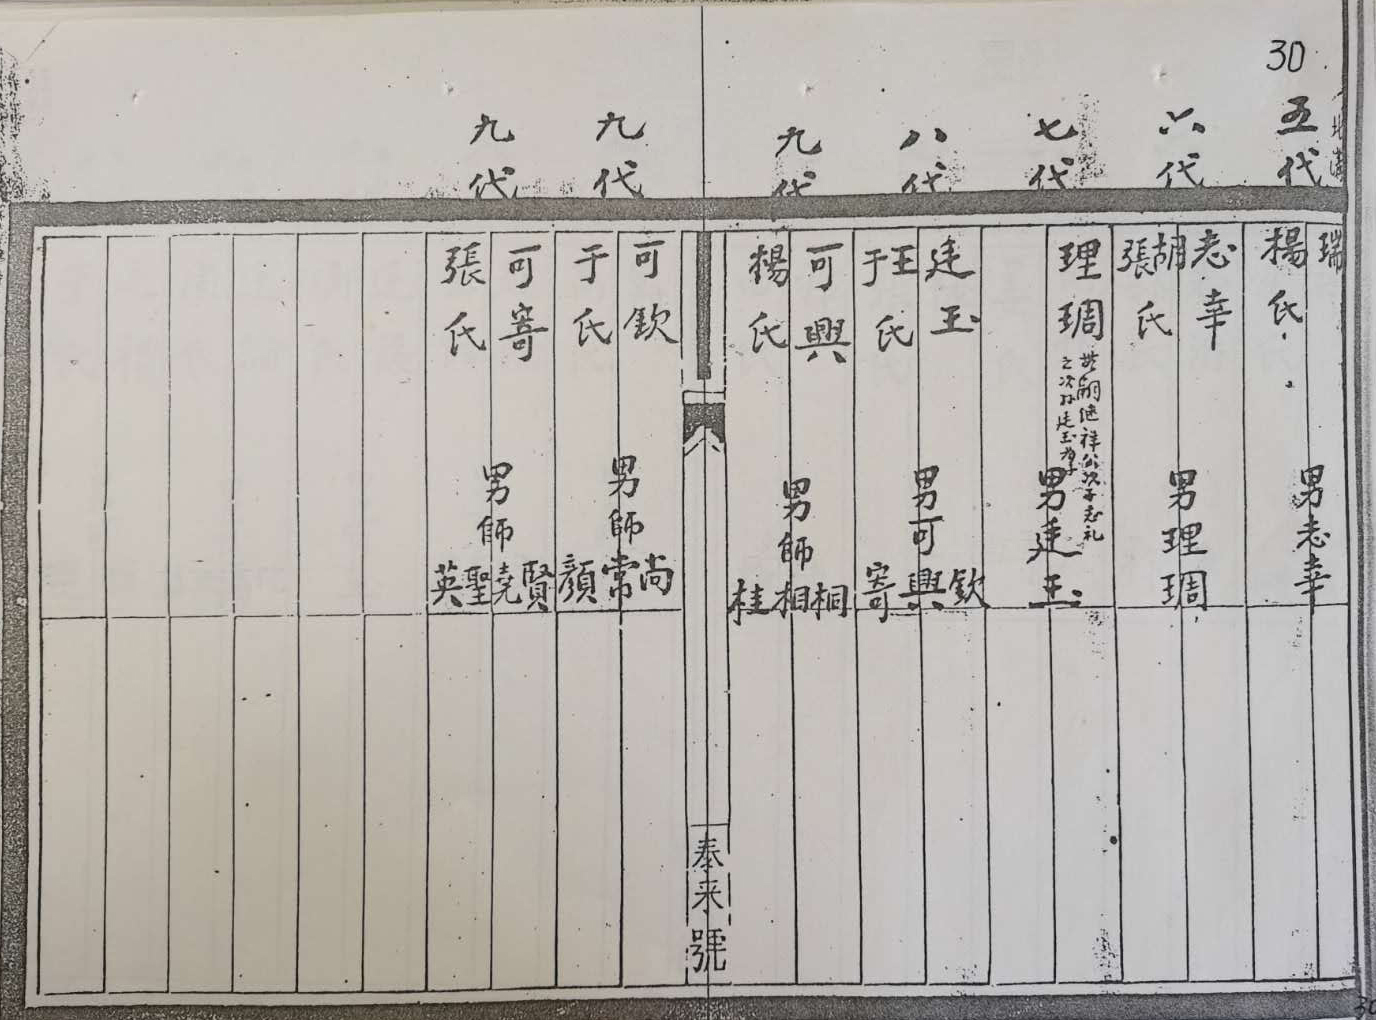 30
五代
瑞
楊氏
男志幸
六代
志幸
胡張氏
男理琱
七代
理琱
嗣继祥公次子志礼
之次子廷玉为子
男廷玉
八代
廷玉
王于氏
男可欽興寄
九代
可興
楊氏
男師桐相桂
泰来號
九代
可欽
于氏
男師尚常顏
九代
可寄
張氏
男師賢堯聖英
30